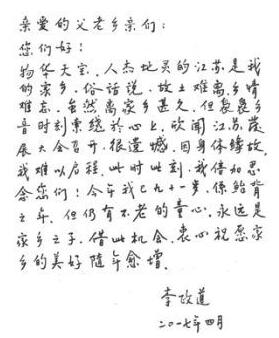 亲爱的父老乡亲们：
您们好！
物华天宝、人杰地灵的江苏是我
的家乡，俗话说，故土难离，乡情
难忘。虽然离家乡甚久，但袅袅乡
音时刻萦绕於心上，欣闻江苏发
展大会召开，很遗憾，因身体缘故，
我难以启程，此时此刻，我倍加思
念您们！今年我已九十一岁，係鲐背
之年，但仍有不老的童心，永远是
家乡之子，借此机会，衷心祝愿家
乡的美好随年愈增。
李政道
二〇一七年四月